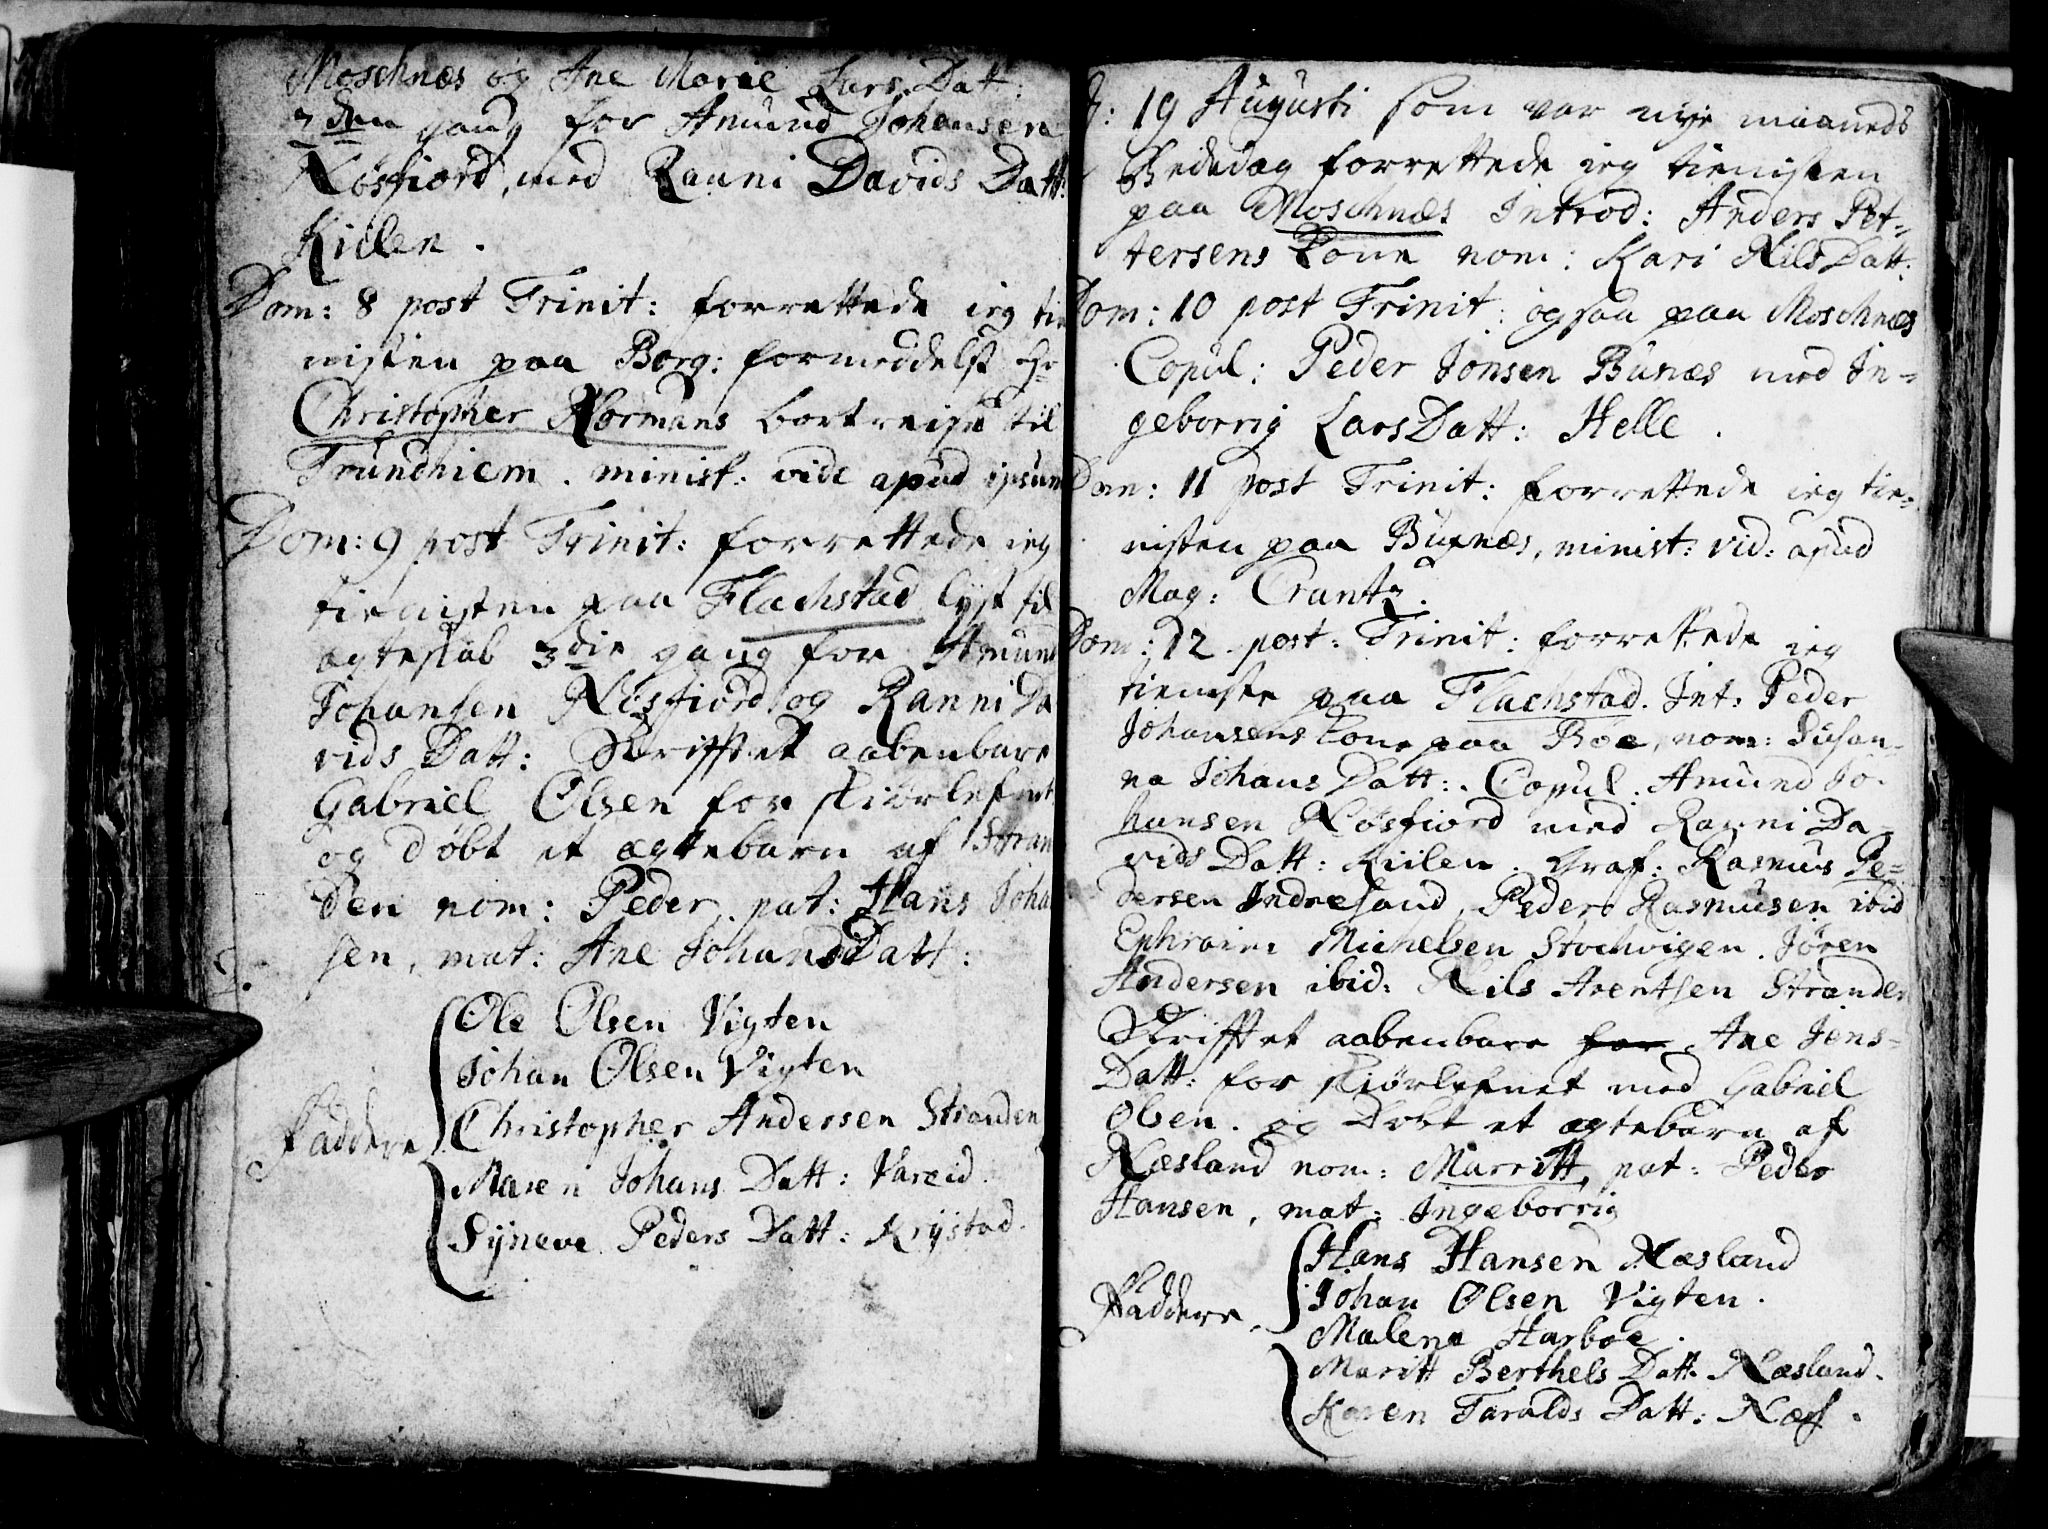 Moschnæs og Ane Marie Lars Datt:
2den gang for Amund Johansen
Nøsfiord, med Ranni Davids Datt:
Kiilen.
Dom: 8 post Trinit: forrettede ieg tie
nisten paa Borg: formeddelst Hr
Christopher Normans bortreise til
Trundhiem. minist: vide apud ipsum
Dom: 9 post Trinit: forrettede ieg
tienisten paa Flachstad lyst til
ægteskab 3die gang for Amund
Johansen Nøsfiord og Ranni Da
vids Datt: Skrifftet aabenbare
Gabriel Olsen for skiørlefnet
og døbt et ægtebarn af Stran
den nom: Peder, pat: Hans Joha
sen, mat: Ane Johans Datt:
Ole Olsen Vigten
Johan Olsen Vigten
Faddere Christopher Andersen Stranden
Maren Johans Datt: Vareid.
Synave Peders Datt: Krystad.
D: 19 Augusti som var nye maaneds
Bededag forrettede ieg tienisten
paa Moschnæs Introd: Anders Pet-
tersens Kone nom: Kari Nils Datt:
Dom: 10 post Trinit: ogsaa paa Moschnæs
Copul: Peder Jonsen Bunæs med In-
geborrig Lars Datt: Helle.
Dom: 11 post Trinit: forrettede ieg tie-
nisten paa Buxnæs, minist: vid: apud
Mag: Crantz.
Dom: 12 post: Trinit: forrettede ieg
tieniste paa Flachstad. Int: Peder
Johansens Kone paa Bøe, nom: Susan-
na Johans Datt:. Copul: Amund Jo-
hansen Nøsfiord med Ranni Da-
vids Datt: Kiilen. Graf: Rasmus Pe-
dersen Indresand, Peder Rasmusen ibid
Ephraim Michelsen Stochvigen. Jøren
Andersen ibid: Nils Arentsen Stranden
Skrifftet aabenbare for Ane Jens-
Datt: for skiørlefnet med Gabriel
Olsen. og Døbt et ægtebarn af
Næsland nom: Marritt, pat: Peder
Hansen, mat: Ingeborrig
Hans Hansen Næsland
Faddere, Johan Olsen Vigten.
Malena Harboe.
Maritt Berthels Datt: Næsland.
Karen Taralds Datt: Næss.